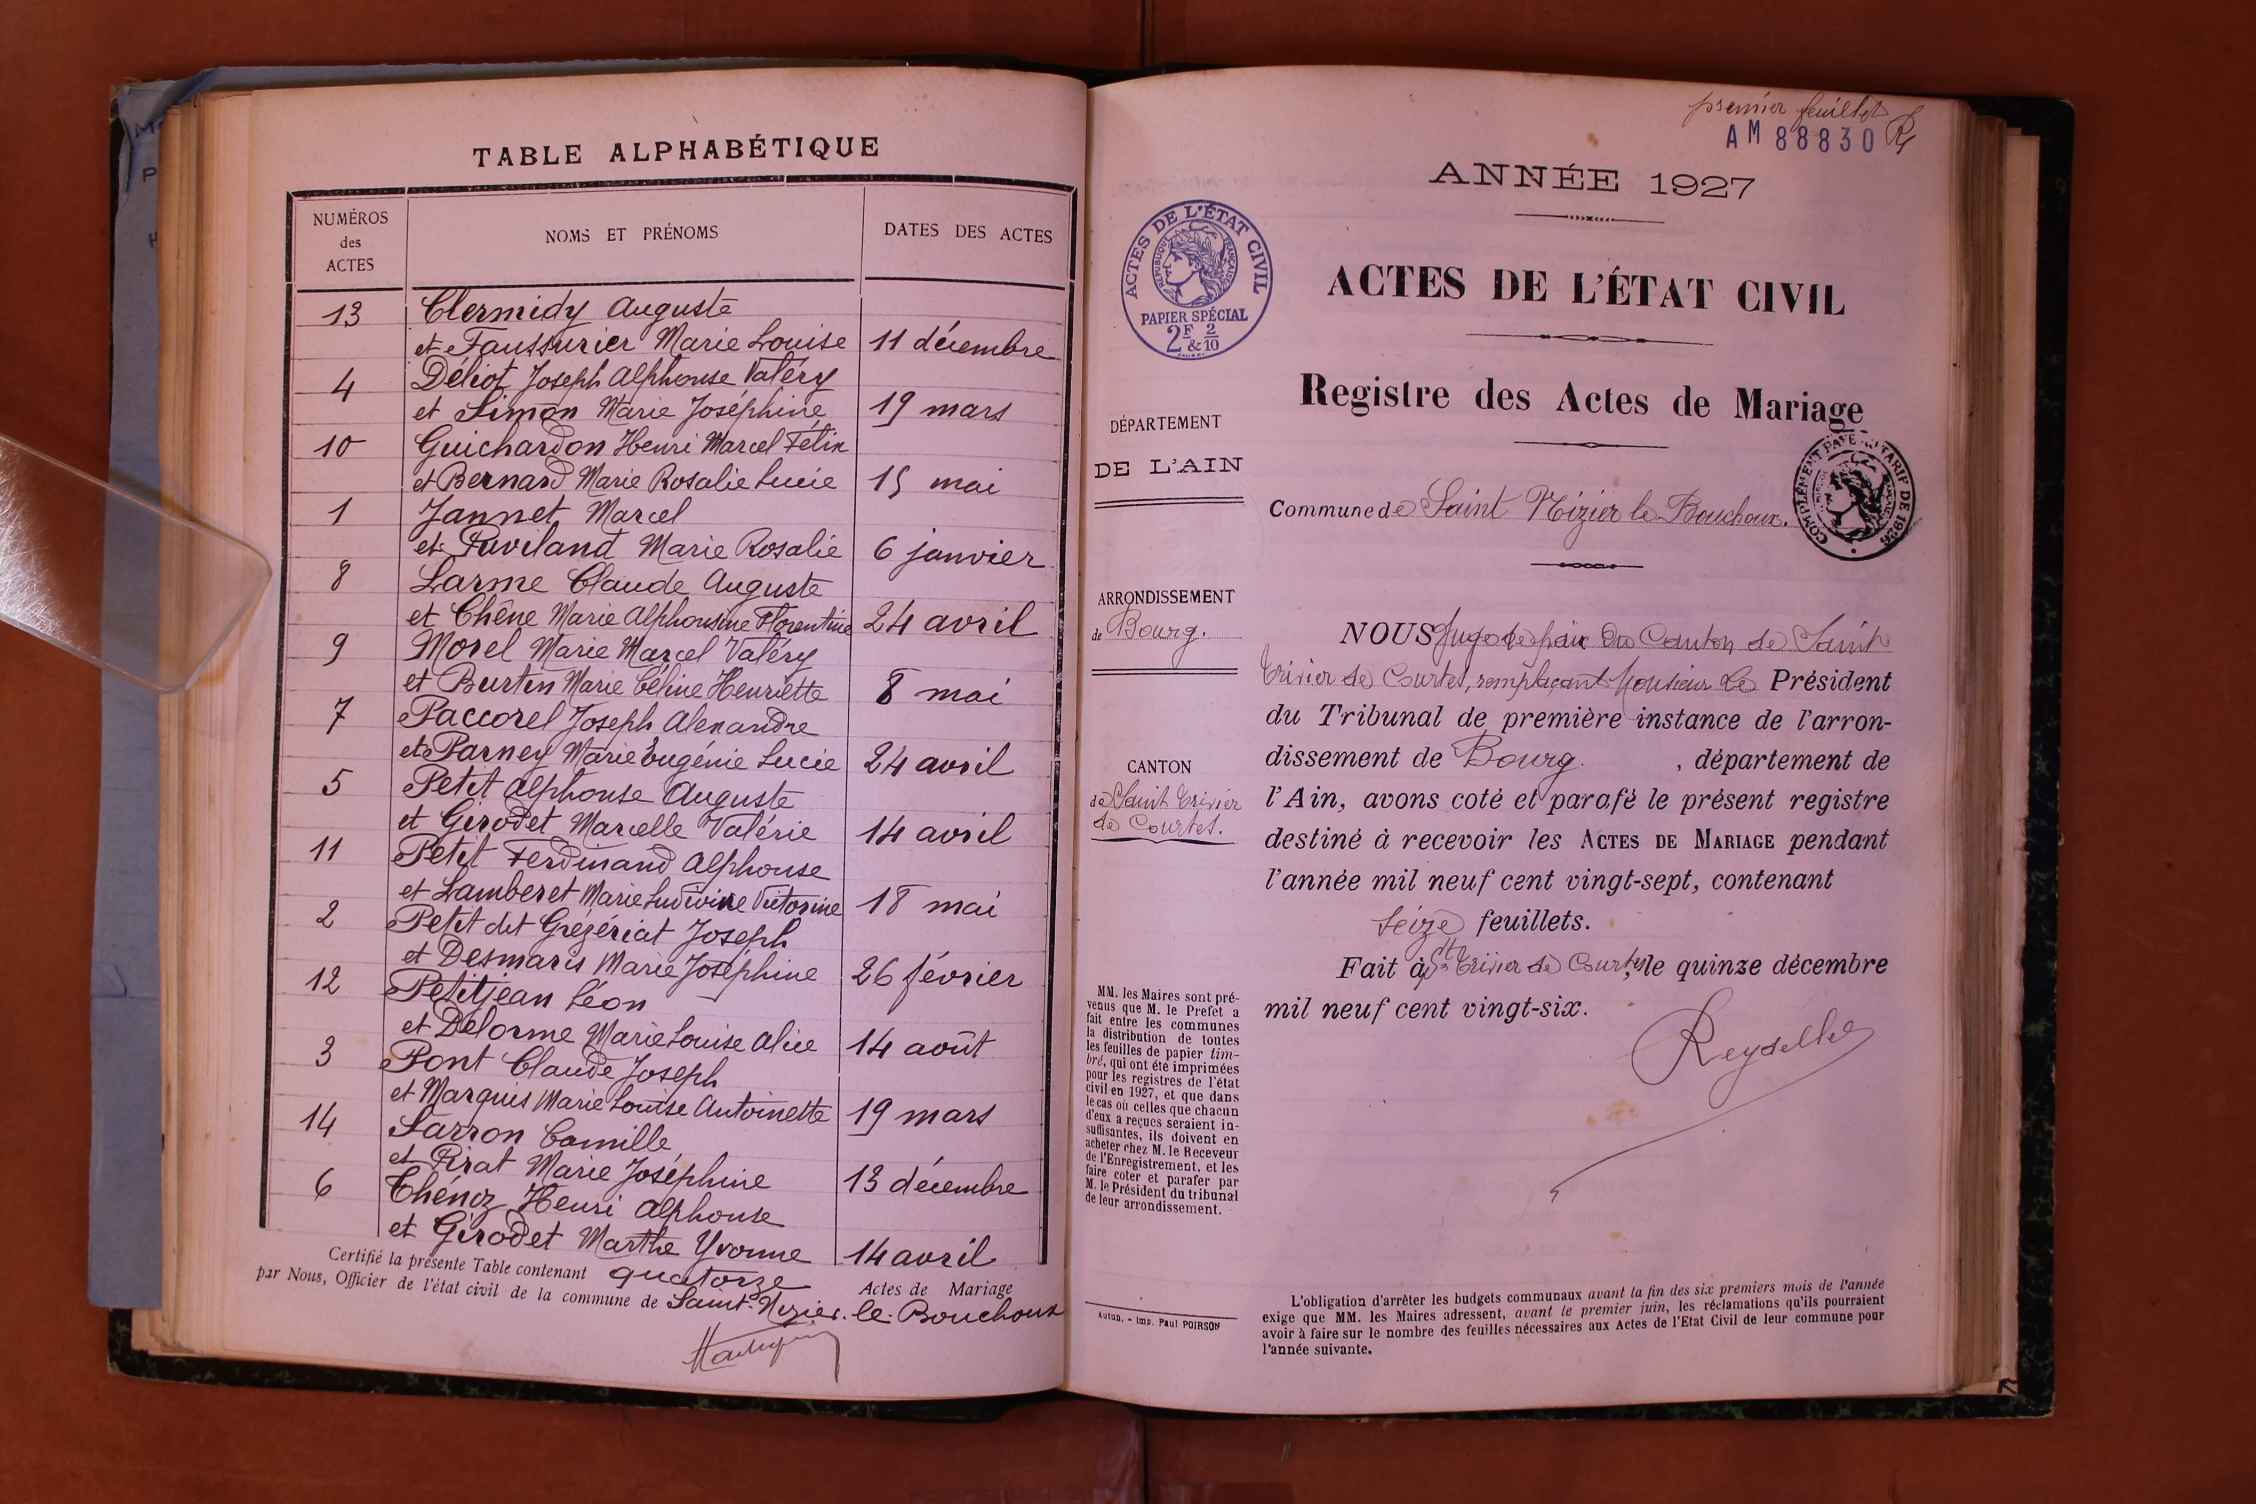 TABLE ALPHABÉTIQUE
NUMÉROS
des
ACTES
NOMS ET PRÉNOMS
DATES DES ACTES
13 Clermidy Auguste
et Faussurier Marie Louise 11 décembre
4 Déliot Joseph Alphonse Valéry
et Simon Marie Joséphine 19 mars
10 Guichardon Henri Marcel Félix
et Bernard Marie Rosalie Lucie 15 mai
1 Jannet Marcel
et Paviland Marie Rosalie 6 janvier
8 Larme Claude Auguste
et Chêne Marie Alphonsine Florentine 24 avril
9 Morel Marie Marcel Valéry
et Burtin Marie Céline Henriette 8 mai
7 Paccorel Joseph Alexandre
et Parney Marie Eugénie Lucie 24 avril
5 Petit Alphonse Auguste
et Girodet Marcelle Valérie 14 avril
11 Petit Ferdinand Alphonse
et Lamberet Marie Ludivine Victorine 18 mai
2 Petit dit Grégériat Joseph
et Desmaris Marie Joséphine 26 février
12 Petitjean Léon
et Delorme Marie Louise Alice 14 août
3 Pont Claude Joseph
et Marquis Marie Louise Antoinette 19 mars
14 Sarron Camille
et Pirat Marie Joséphine 13 décembre
6 Thénoz Henri Alphonse
et Girodet Marthe Yvonne 14 avril
Certifié la présente Table contenant quatorze Actes de Mariage
par Nous, Officier de l'état civil de la commune de Saint-Nizier-le-Bouchoux
premier feuillet
AM 88830
ANNÉE 1927
ACTES DE L'ÉTAT CIVIL
RÉPUBLIQUE FRANÇAISE
PAPIER SPÉCIAL
2F & 2/10
ACTES DE L'ÉTAT CIVIL
Registre des Actes de Mariage
COMPLÉMENT PAYÉ AU TARIF DE 1926
Commune de Saint Nizier le Bouchoux.
DÉPARTEMENT
DE L'AIN
ARRONDISSEMENT
de Bourg.
CANTON
de Saint Trivier
de Courtes.
MM. les Maires sont pré-
venus que M. le Préfet a
fait entre les communes
la distribution de toutes
les feuilles de papier tim-
bré, qui ont été imprimées
pour les registres de l'état
civil en 1927, et que dans
le cas où celles que chacun
d'eux a reçues seraient in-
suffisantes, ils doivent en
acheter chez M. le Receveur
de l'Enregistrement, et les
faire coter et parafer par
M. le Président du tribunal
de leur arrondissement.
Autun. - Imp. Paul POIRSON
NOUS Juge de paix du Canton de Saint
Trivier de Courtes, remplaçant Monsieur le Président
du Tribunal de première instance de l'arron-
dissement de Bourg. , département de
l'Ain, avons coté et parafé le présent registre
destiné à recevoir les ACTES DE MARIAGE pendant
l'année mil neuf cent vingt-sept, contenant
seize feuillets.
Fait à St Trivier de Courtes, le quinze décembre
mil neuf cent vingt-six.
L'obligation d'arrêter les budgets communaux avant la fin des six premiers mois de l'année
exige que MM. les Maires adressent, avant le premier juin, les réclamations qu'ils pourraient
avoir à faire sur le nombre des feuilles nécessaires aux Actes de l'Etat Civil de leur commune pour
l'année suivante.